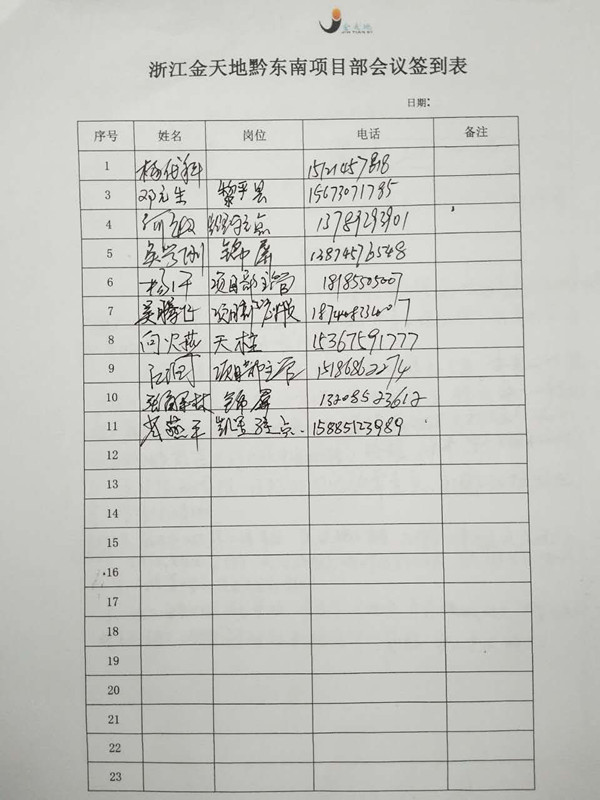 金天地
浙江金天地黔东南项目部会议签到表
日期:
序号 姓名 岗位 电话 备注
1 15121457818
3 邓元生 黎平县 15673071785
4 13789293901
5 锦屏 13874576548
6 项目部主管 18185505007
7 吴腾飞 项目部
8 向火燕 天柱 15367591777
9 项目部主管 15186862274
10 锦屏 13208523612
11 燕平 凯里驻点. 15885123989
12
13
14
15
16
17
18
19
20
21
22
23